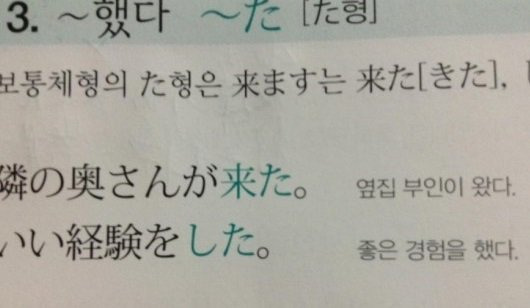 3. ~했다 ~た [た형]
보통체형의 た형은 来ます는 来た[きた],
隣の奥さんが来た。 옆집 부인이 왔다.
いい経験をした。 좋은 경험을 했다.